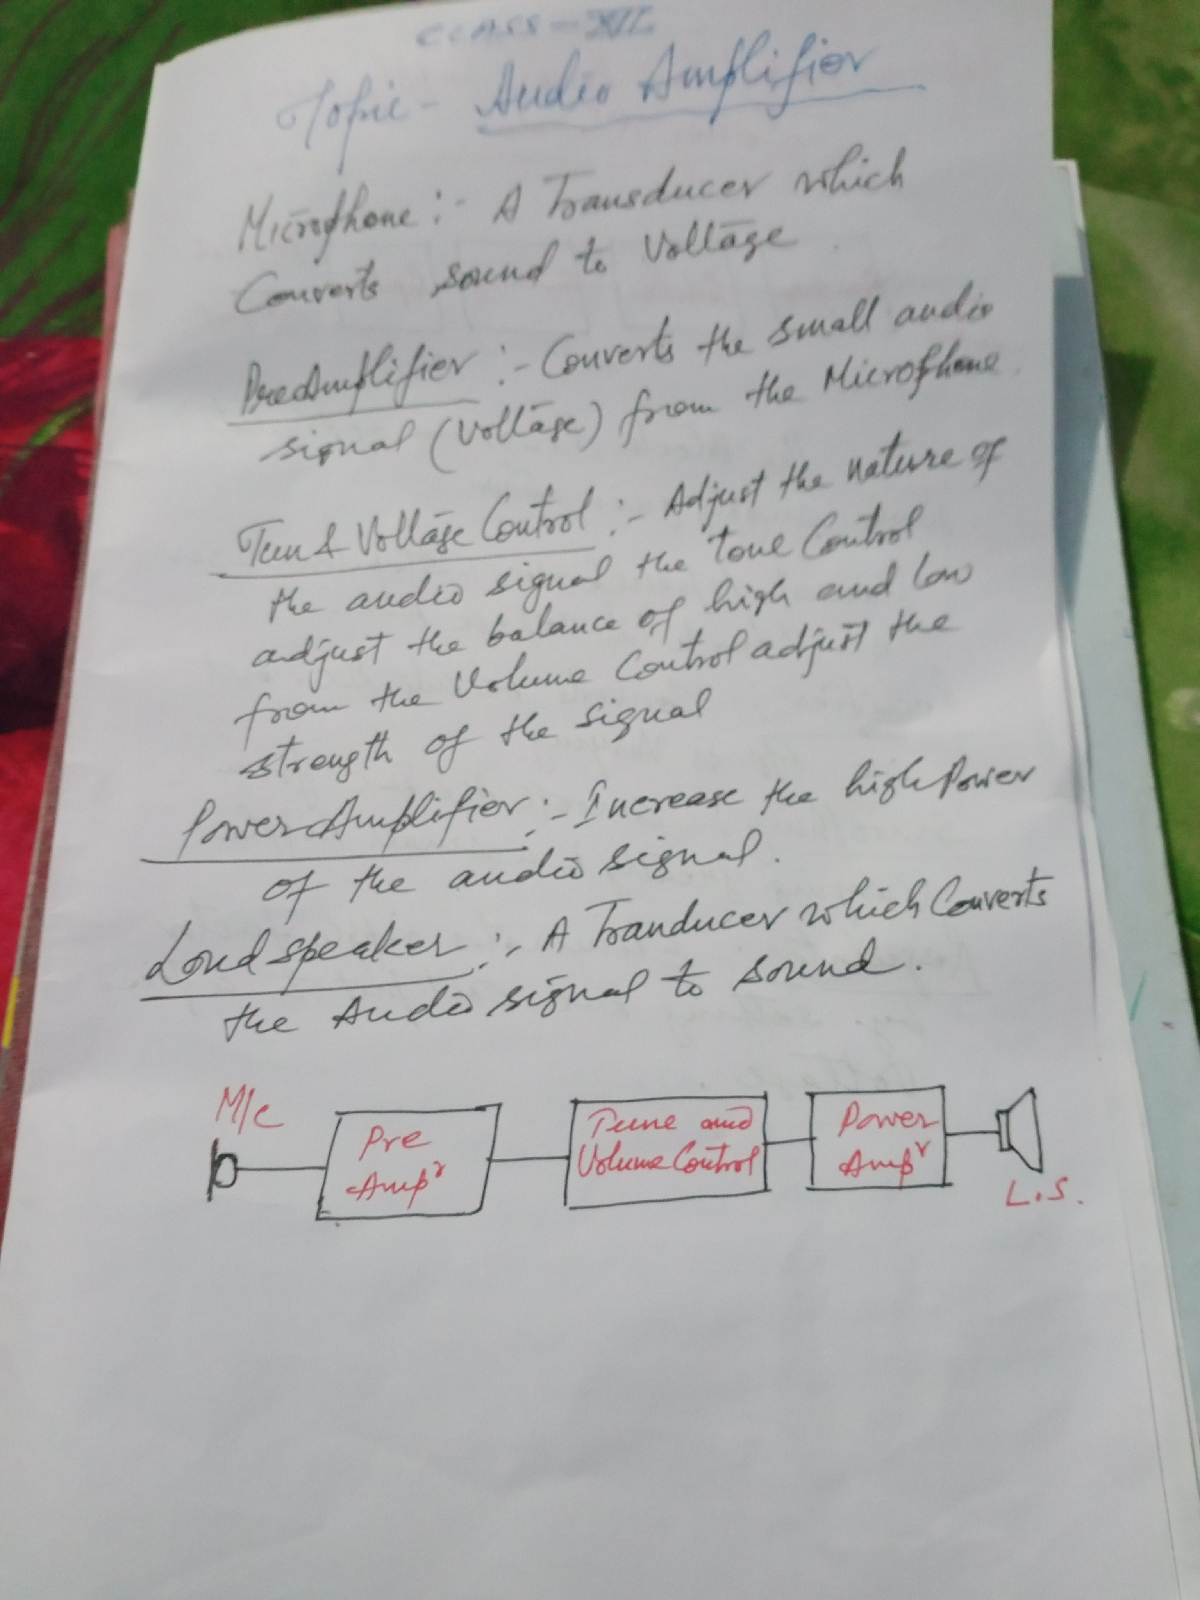 CLASS - XII
Topic - Audio Amplifier
Microphone :- A Transducer which
Converts sound to Voltage
PreAmplifier :- Converts the small audio
signal (Voltage) from the Microphone.
Tun & Voltage Control :- Adjust the nature of
the audio signal the tone Control
adjust the balance of high and low
from the Volume Control adjust the
strength of the signal
Power Amplifier :- Increase the high Power
of the audio signal.
Loud speaker :- A Tranducer which Converts
the Audio signal to sound.
M/c
Pre
Ampr
Tune and
Volume Control
Power
Ampr
L.S.